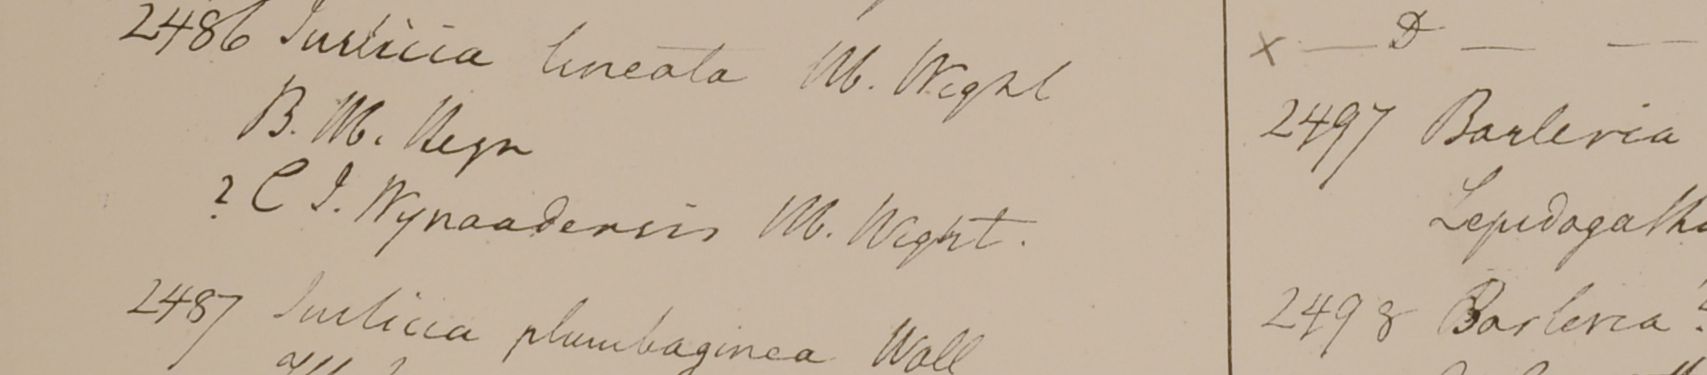 2486 Justicia lineata M. Wight
B. M. Heyn
? C J. Wynaadensis M. Wight.
2487 Justicia plumbaginea Wall
x — D — —
2497 Barleria
Lepidagath
2498 Barleria ?